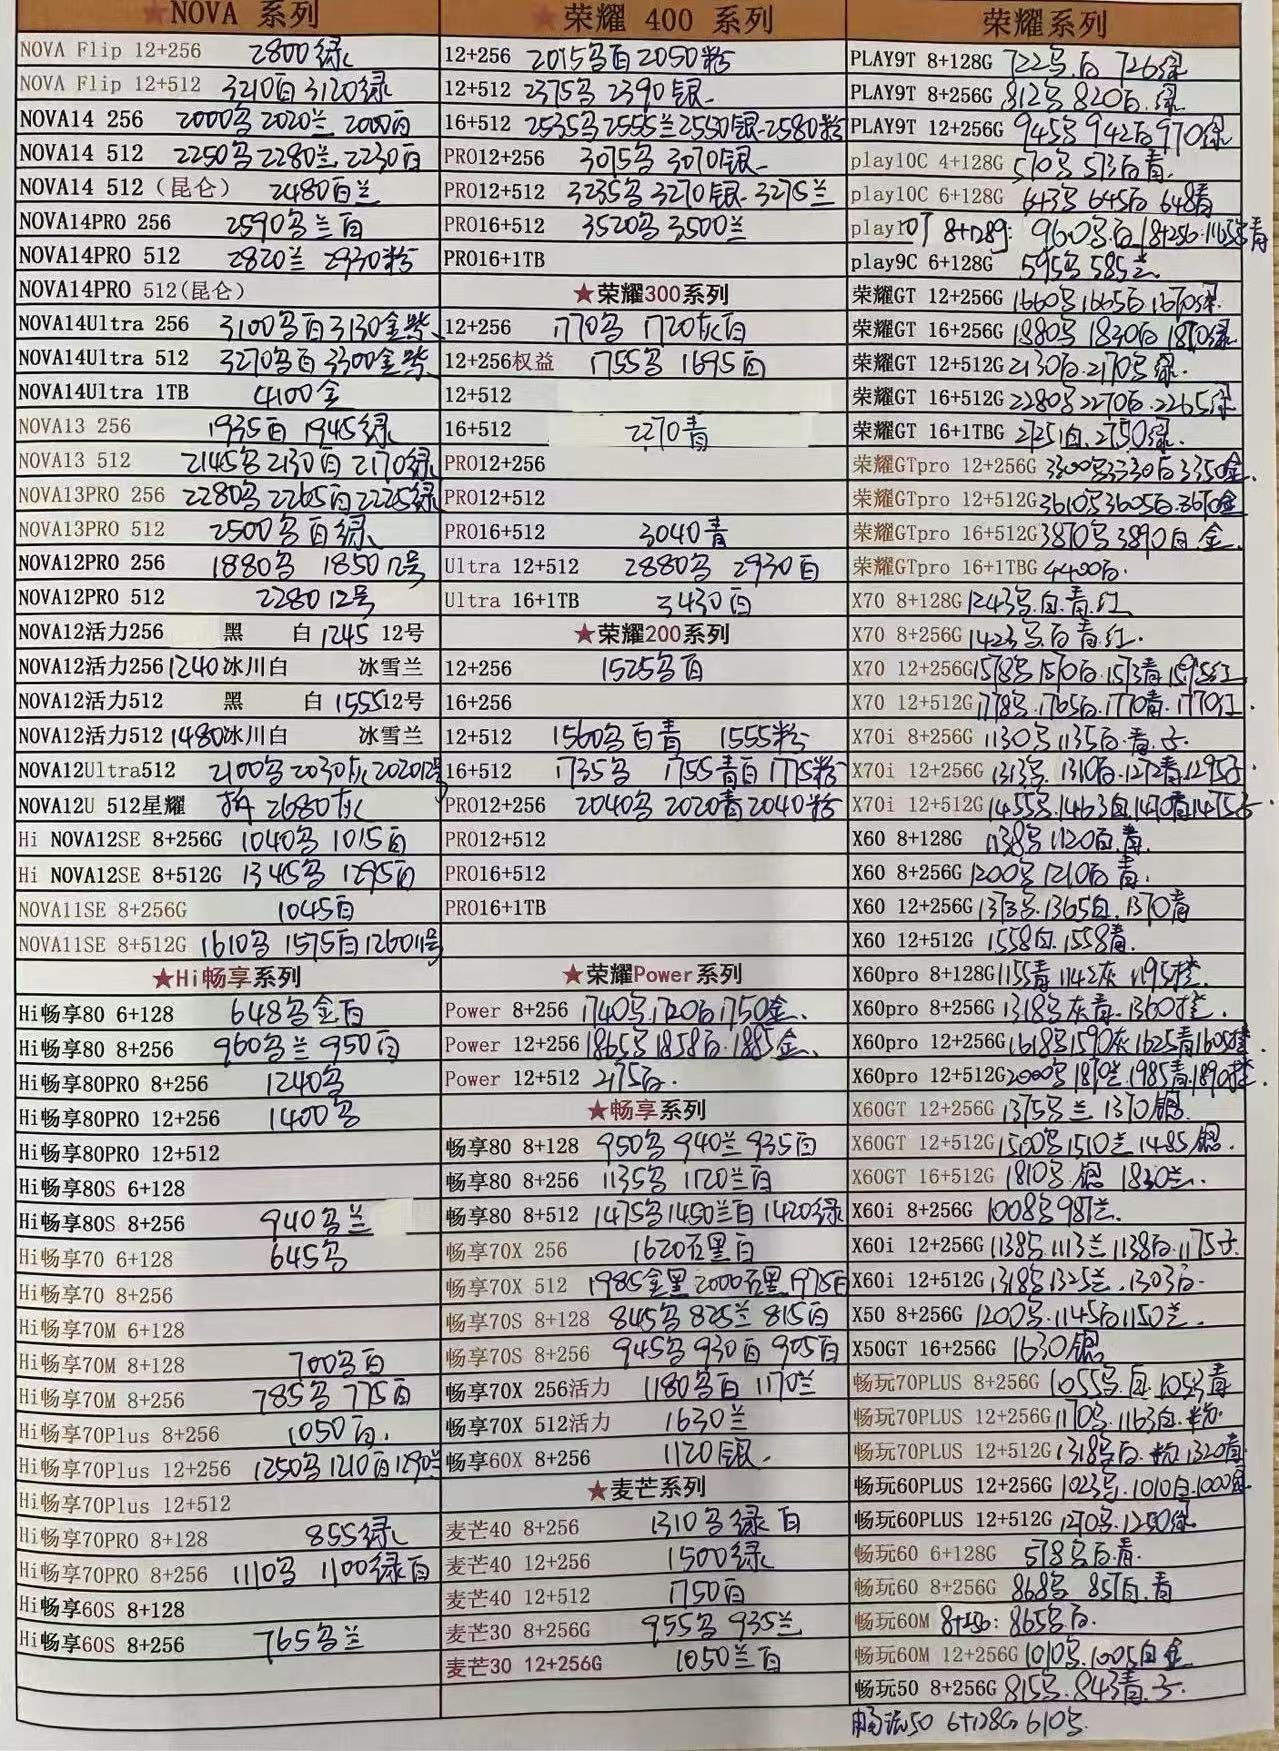 ★NOVA 系列
NOVA Flip 12+256 2800绿
NOVA Flip 12+512 3210白 3120绿
NOVA14 256 2000名 2020兰 2000白
NOVA14 512 2250名 2280兰 2230白
NOVA14 512（昆仑） 2480白兰
NOVA14PRO 256 2590名兰白
NOVA14PRO 512 2820兰 2930粉
NOVA14PRO 512(昆仑)
NOVA14Ultra 256 3100名白 3130金紫
NOVA14Ultra 512 3270名白 3300金紫
NOVA14Ultra 1TB 4100金
NOVA13 256 1935白 1945绿
NOVA13 512 2145名 2130白 2170绿
NOVA13PRO 256 2280名 2265白 2225绿
NOVA13PRO 512 2500名白绿
NOVA12PRO 256 1880名 1850 12号
NOVA12PRO 512 2280 12号
NOVA12活力256 黑 白 1245 12号
NOVA12活力256 1240冰川白 冰雪兰
NOVA12活力512 黑 白 1555 12号
NOVA12活力512 1480冰川白 冰雪兰
NOVA12Ultra512 2100名 2030灰 2020 12号
NOVA12U 512星耀 拆 2680灰
Hi NOVA12SE 8+256G 1040名 1015白
Hi NOVA12SE 8+512G 1345名 1295白
NOVA11SE 8+256G 1045白
NOVA11SE 8+512G 1610名 1575白 1260 11号
★Hi畅享系列
Hi畅享80 6+128 648名金白
Hi畅享80 8+256 960名兰 950白
Hi畅享80PRO 8+256 1240名
Hi畅享80PRO 12+256 1400名
Hi畅享80PRO 12+512
Hi畅享80S 6+128
Hi畅享80S 8+256 940名兰
Hi畅享70 6+128 645名
Hi畅享70 8+256
Hi畅享70M 6+128
Hi畅享70M 8+128 700名白
Hi畅享70M 8+256 785名 775白
Hi畅享70Plus 8+256 1050白.
Hi畅享70Plus 12+256 1250名 1210白 1290兰
Hi畅享70Plus 12+512
Hi畅享70PRO 8+128 855绿
Hi畅享70PRO 8+256 1110名 1100绿白
Hi畅享60S 8+128
Hi畅享60S 8+256 765名兰
★荣耀 400 系列
12+256 2015名白 2050粉
12+512 2375名 2390银
16+512 2535名 2555兰 2550银 2580粉
PRO12+256 3075名 3070银
PRO12+512 3235名 3270银 3275兰
PRO16+512 3520名 3500兰
PRO16+1TB
★荣耀300系列
12+256 1770名 1720灰白
12+256权益 1755名 1695白
12+512
16+512 2270青
PRO12+256
PRO12+512
PRO16+512 3040青
Ultra 12+512 2880名 2930白
Ultra 16+1TB 3430白
★荣耀200系列
12+256 1525名白
16+256
12+512 1560名白青 1555粉
16+512 1735名 1755青白 1775粉
PRO12+256 2040名 2020青 2040粉
PRO12+512
PRO16+512
PRO16+1TB
★荣耀Power系列
Power 8+256 1740名.1720白 1750金.
Power 12+256 1865名 1858白.1885金.
Power 12+512 2175白.
★畅享系列
畅享80 8+128 950名 940兰 935白
畅享80 8+256 1135名 1120兰白
畅享80 8+512 1475名 1450兰白 1420绿
畅享70X 256 1620石黑白
畅享70X 512 1985金黑 2000石黑 1975白
畅享70S 8+128 845名 825兰 815白
畅享70S 8+256 945名 930白 905白
畅享70X 256活力 1180名白 1170兰
畅享70X 512活力 1630兰
畅享60X 8+256 1120银.
★麦芒系列
麦芒40 8+256 1310名绿白
麦芒40 12+256 1500绿
麦芒40 12+512 1750白
麦芒30 8+256G 955名 935兰
麦芒30 12+256G 1050兰白
荣耀系列
PLAY9T 8+128G 722名.白 726绿
PLAY9T 8+256G 812名 820白.绿
PLAY9T 12+256G 945名 942白 970绿
play10C 4+128G 570名 573白青.
play10C 6+128G 643名 645白 648青
play10T 8+128g: 960名.白 18+256.1165名青
play9C 6+128G 595名 585兰.
荣耀GT 12+256G 1660名 1665白.1670绿.
荣耀GT 16+256G 1880名 1830白 1870绿
荣耀GT 12+512G 2130白.2170名绿.
荣耀GT 16+512G 2280名 2270白.2265绿
荣耀GT 16+1TBG 2725白.2750绿.
荣耀GTpro 12+256G 3300名 3330白 3350金.
荣耀GTpro 12+512G 3610名 3605白.3670金
荣耀GTpro 16+512G 3870名 3890白.金.
荣耀GTpro 16+1TBG 4400白.
X70 8+128G 1243名.白.青.红
X70 8+256G 1423名白青.红.
X70 12+256G 1578名 1570白.1573青 1595红
X70 12+512G 1778名.1765白.1770青.1770红.
X70i 8+256G 1130名 1135白.青.子.
X70i 12+256G 1313名.1310白.1272青.1295子
X70i 12+512G 1455名.1463白.1470青 1475子
X60 8+128G 1138名 1120白.青.
X60 8+256G 1200名 1210白 青.
X60 12+256G 1373名.1365白.1370青
X60 12+512G 1558白.1558青.
X60pro 8+128G 1155青 1142灰 1195橙.
X60pro 8+256G 1318名灰青.1360橙.
X60pro 12+256G 1618名 1590灰 1625青 1605橙.
X60pro 12+512G 2000名 1870兰.1985青.1890橙.
X60GT 12+256G 1375名兰 1370银.
X60GT 12+512G 1500名 1510兰 1485银.
X60GT 16+512G 1810名.银 1830兰.
X60i 8+256G 1008名 987兰.
X60i 12+256G 1138名.1113兰 1138白.1175子.
X60i 12+512G 1318名 1325兰.1303白.
X50 8+256G 1200名.1145白 1150兰.
X50GT 16+256G 1630银
畅玩70PLUS 8+256G 1055名.白.1054青
畅玩70PLUS 12+256G 1170名.1163白.粉.
畅玩70PLUS 12+512G 1318名白.粉 1320青
畅玩60PLUS 12+256G 1023名.1010白.1000绿
畅玩60PLUS 12+512G 1270名.1250绿
畅玩60 6+128G 578名白.青.
畅玩60 8+256G 868名 857白.青
畅玩60M 8+256: 865名白.
畅玩60M 12+256G 1010名.1005白金
畅玩50 8+256G 815名.843青.子.
畅玩50 6+128G 610名.